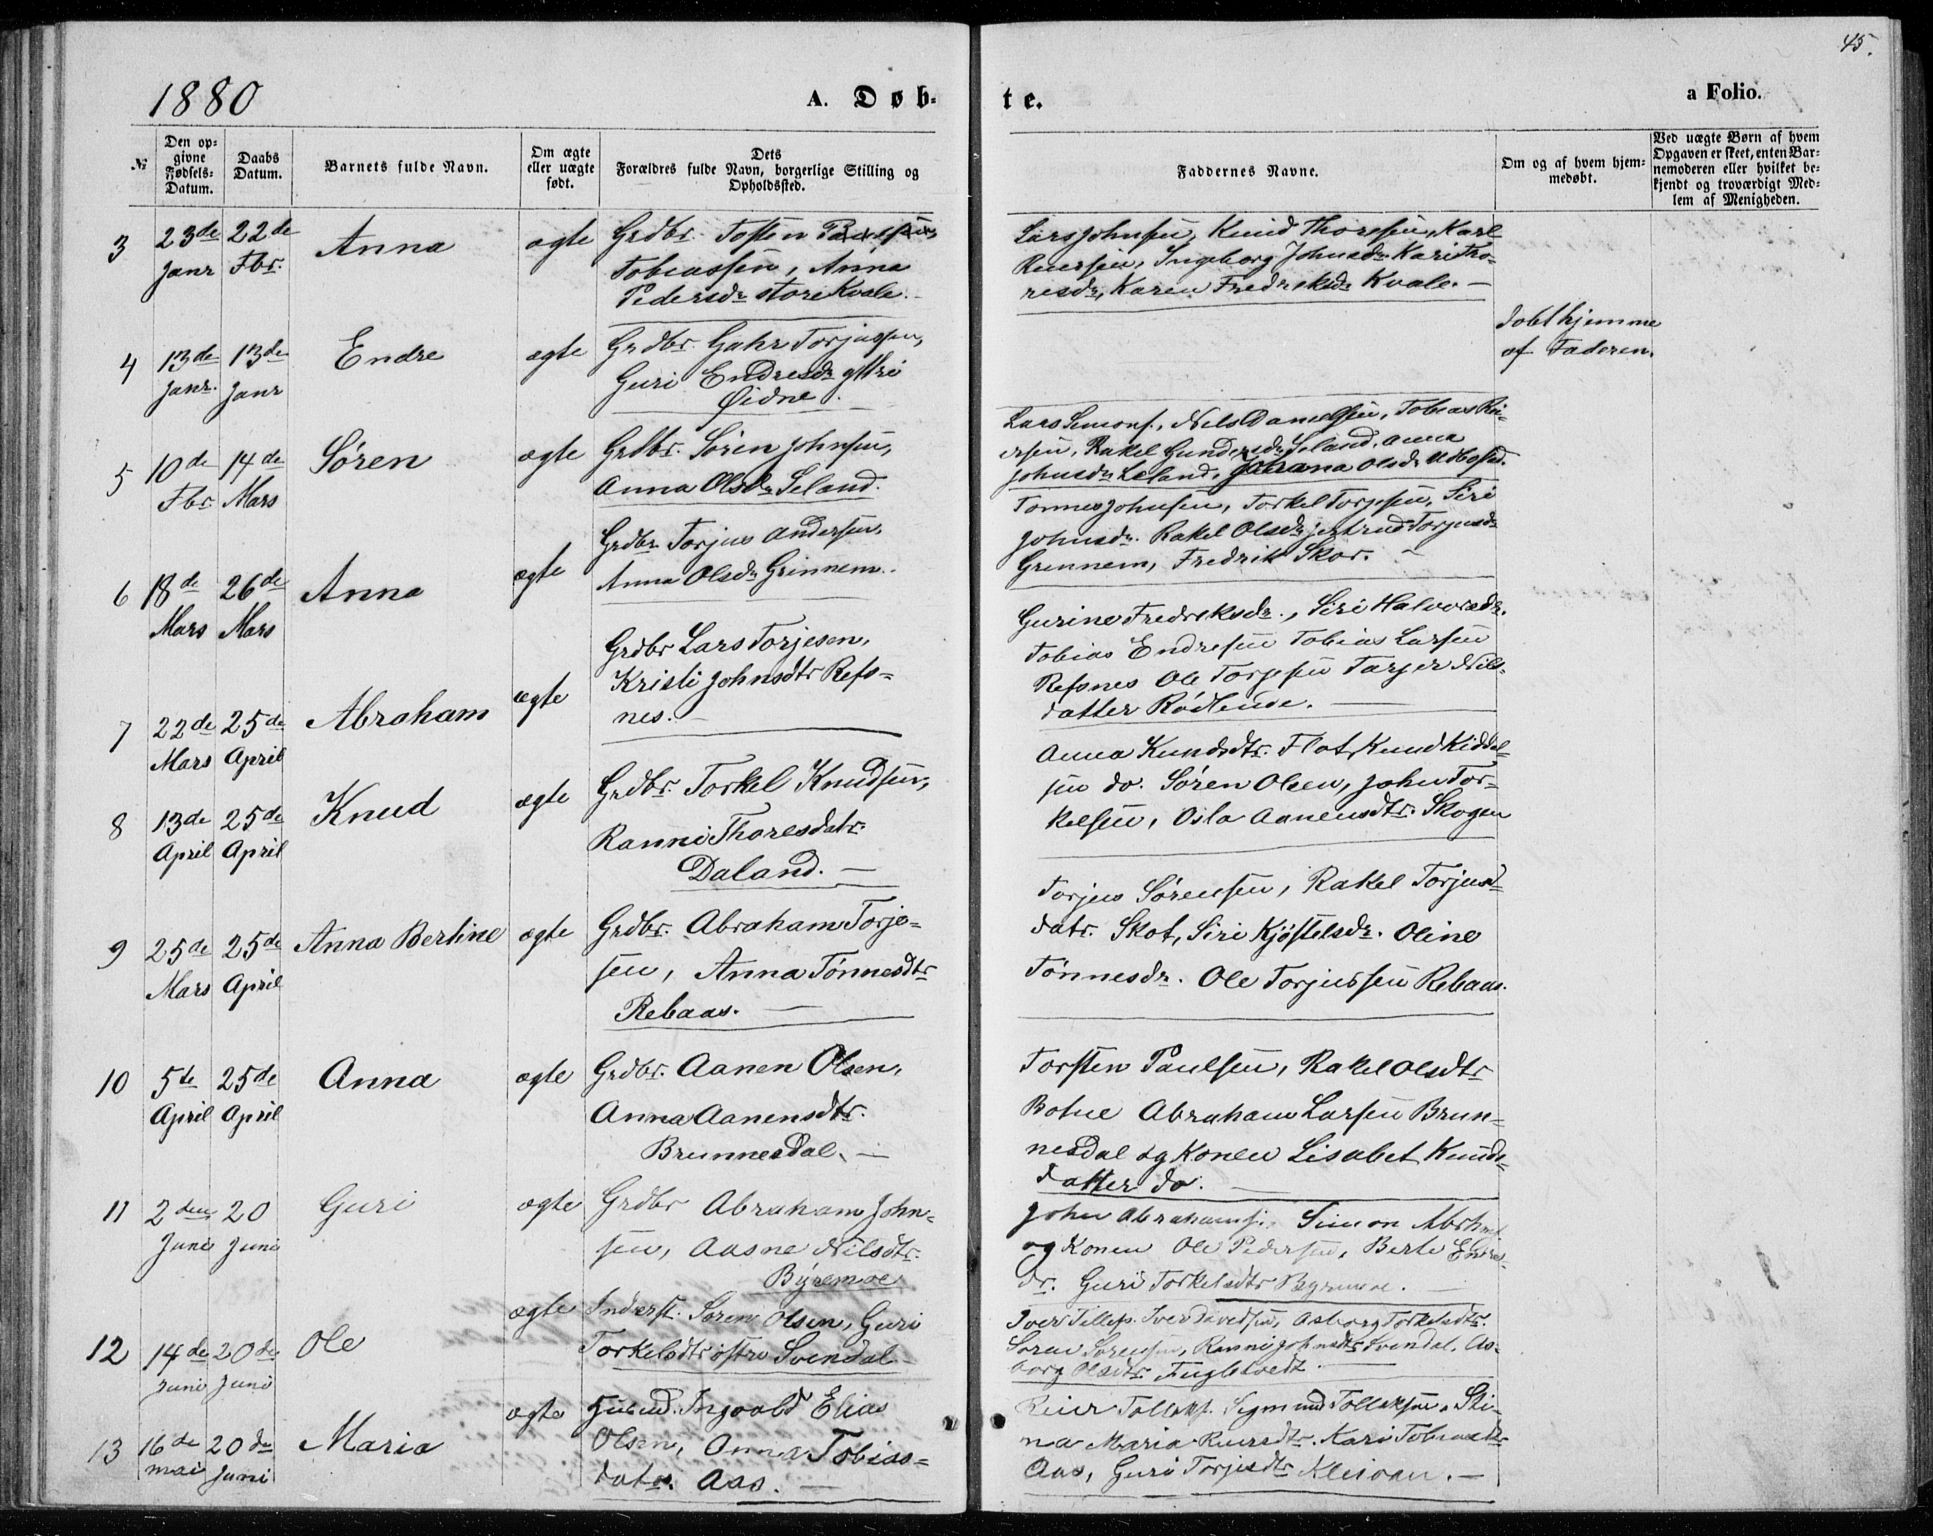 45.
1880
A. Døb-
te.
a Folio.
№
Den op-
givne
Fødsels-
Datum.
Daabs
Datum.
Barnets fulde Navn.
Om ægte
eller uægte
født.
Dets
Forældres fulde Navn, borgerlige Stilling og
Opholdssted.
Faddernes Navne.
Om og af hvem hjem-
medøbt.
Ved uægte Børn af hvem
Opgaven er skeet, enten Bar-
nemoderen eller hvilket be-
kjendt og troværdigt Med-
lem af Menigheden.
3
23de
Janr
22de
Fbr.
Anna
ægte
Grdbr. Tosten
Tobiassen, Anna
Pedersdr store Kvale.
Lars Johnsen, Knud Thoresen, Karl
Reiersen, Ingeborg Johnsdr Kari Tho-
resdr, Karen Fredreksdr Kvale. —
4
13de
Janr.
13de
Janr
Endre
ægte
Grdbr. Gahr Torjussen,
Guri Endresdr yttri
Øidne.
Døbt hjemme
af Faderen.
5
10de
Fbr
14de
Mars
Søren
ægte
Grdbr. Søren Johnsen,
Anna Olsdr Seland.
Lars Simons., Nils Danielsen, Tobias Rei-
ersen, Rakel Gundersdr Seland, Anna
Johnsdr Leland, Olsdr
6
18de
Mars
26de
Mars
Anna
ægte
Grdbr Torjus Andersen,
Anna Olsdr Grinnem.
Tønnes Johnsen, Torkel Torjesen, Siri
Johnsdr. Rakel Olsdr jertrud Torjusdr
Grennem, Fredrik Skor. —
7
22de
Mars
25de
April
Abraham
ægte
Grdbr Lars Torjesen,
Kristi Johnsdtr Refs-
nes. —
Gurine Fredreksdr., Siri Halvorsdr.
Tobias Endresen Tobias Larsen
Refsnes Ole Torjesen Tarjer Nils-
datter Rødlende. —
8
13de
April
25de
April
Knud
ægte
Grdbr. Torkel Knudsen,
Ranni Thoresdatr.
Daland. —
Anna Knudsdtr. Flot, Knud Kiddel-
sen do. Søren Olsen, John Tor-
kelsen, Osla Aanensdtr. Skogen
9
25de
Mars
25de
April
Anna Bertine
ægte
Grdbr. Abraham Torje-
sen, Anna Tønnesdtr
Rebaas. —
Torjus Sørensen, Rakel Torjus-
datr. Skot, Siri Kjøstelsdr. Oline
Tønnesdr. Ole Torjussen Rebaas.
10
5te
April
25de
April
Anna
ægte
Grdbr. Aanen Olsen,
Anna Aanensdtr.
Brunnesdal. —
Torsten Paulsen, Rakel Olsdtr
Botne Abraham Larsen Brun-
nesdal og Konen Lisabet Knuds-
datter do. —
11
2den
Juni
20
Juni
Guri
ægte
Grdbr Abraham John-
sen, Aasne Nilsdtr.
Byremoe
John Abrahams. Simon
og Konen Ole Pedersen, Berte Endres-
dr. Guri Torkelsdtr Byremoe. —
12
14de
Juni
20de
Juni
Ole
ægte
Inderst. Søren Olsen, Guri
Torkelsdtr østre Svendal
Iver Tillefs. Iver Davidsen, Asborg Torkelsdtr.
Søren Sørensen, Ranni Johnsdtr Svendal. As-
borg Olsdtr. Fugletvedt.
13
16de
mai
20de
Juni
Maria
ægte
Ingvald Elias
Olsen, Anna Tobias-
datr. Aas. —
Reier Tolleks. Sigmund Tolleksen, Sti-
na Maria Reiersdtr. Kari Tobiasdtr
Aas, Guri Torjusdtr Kleivan. —